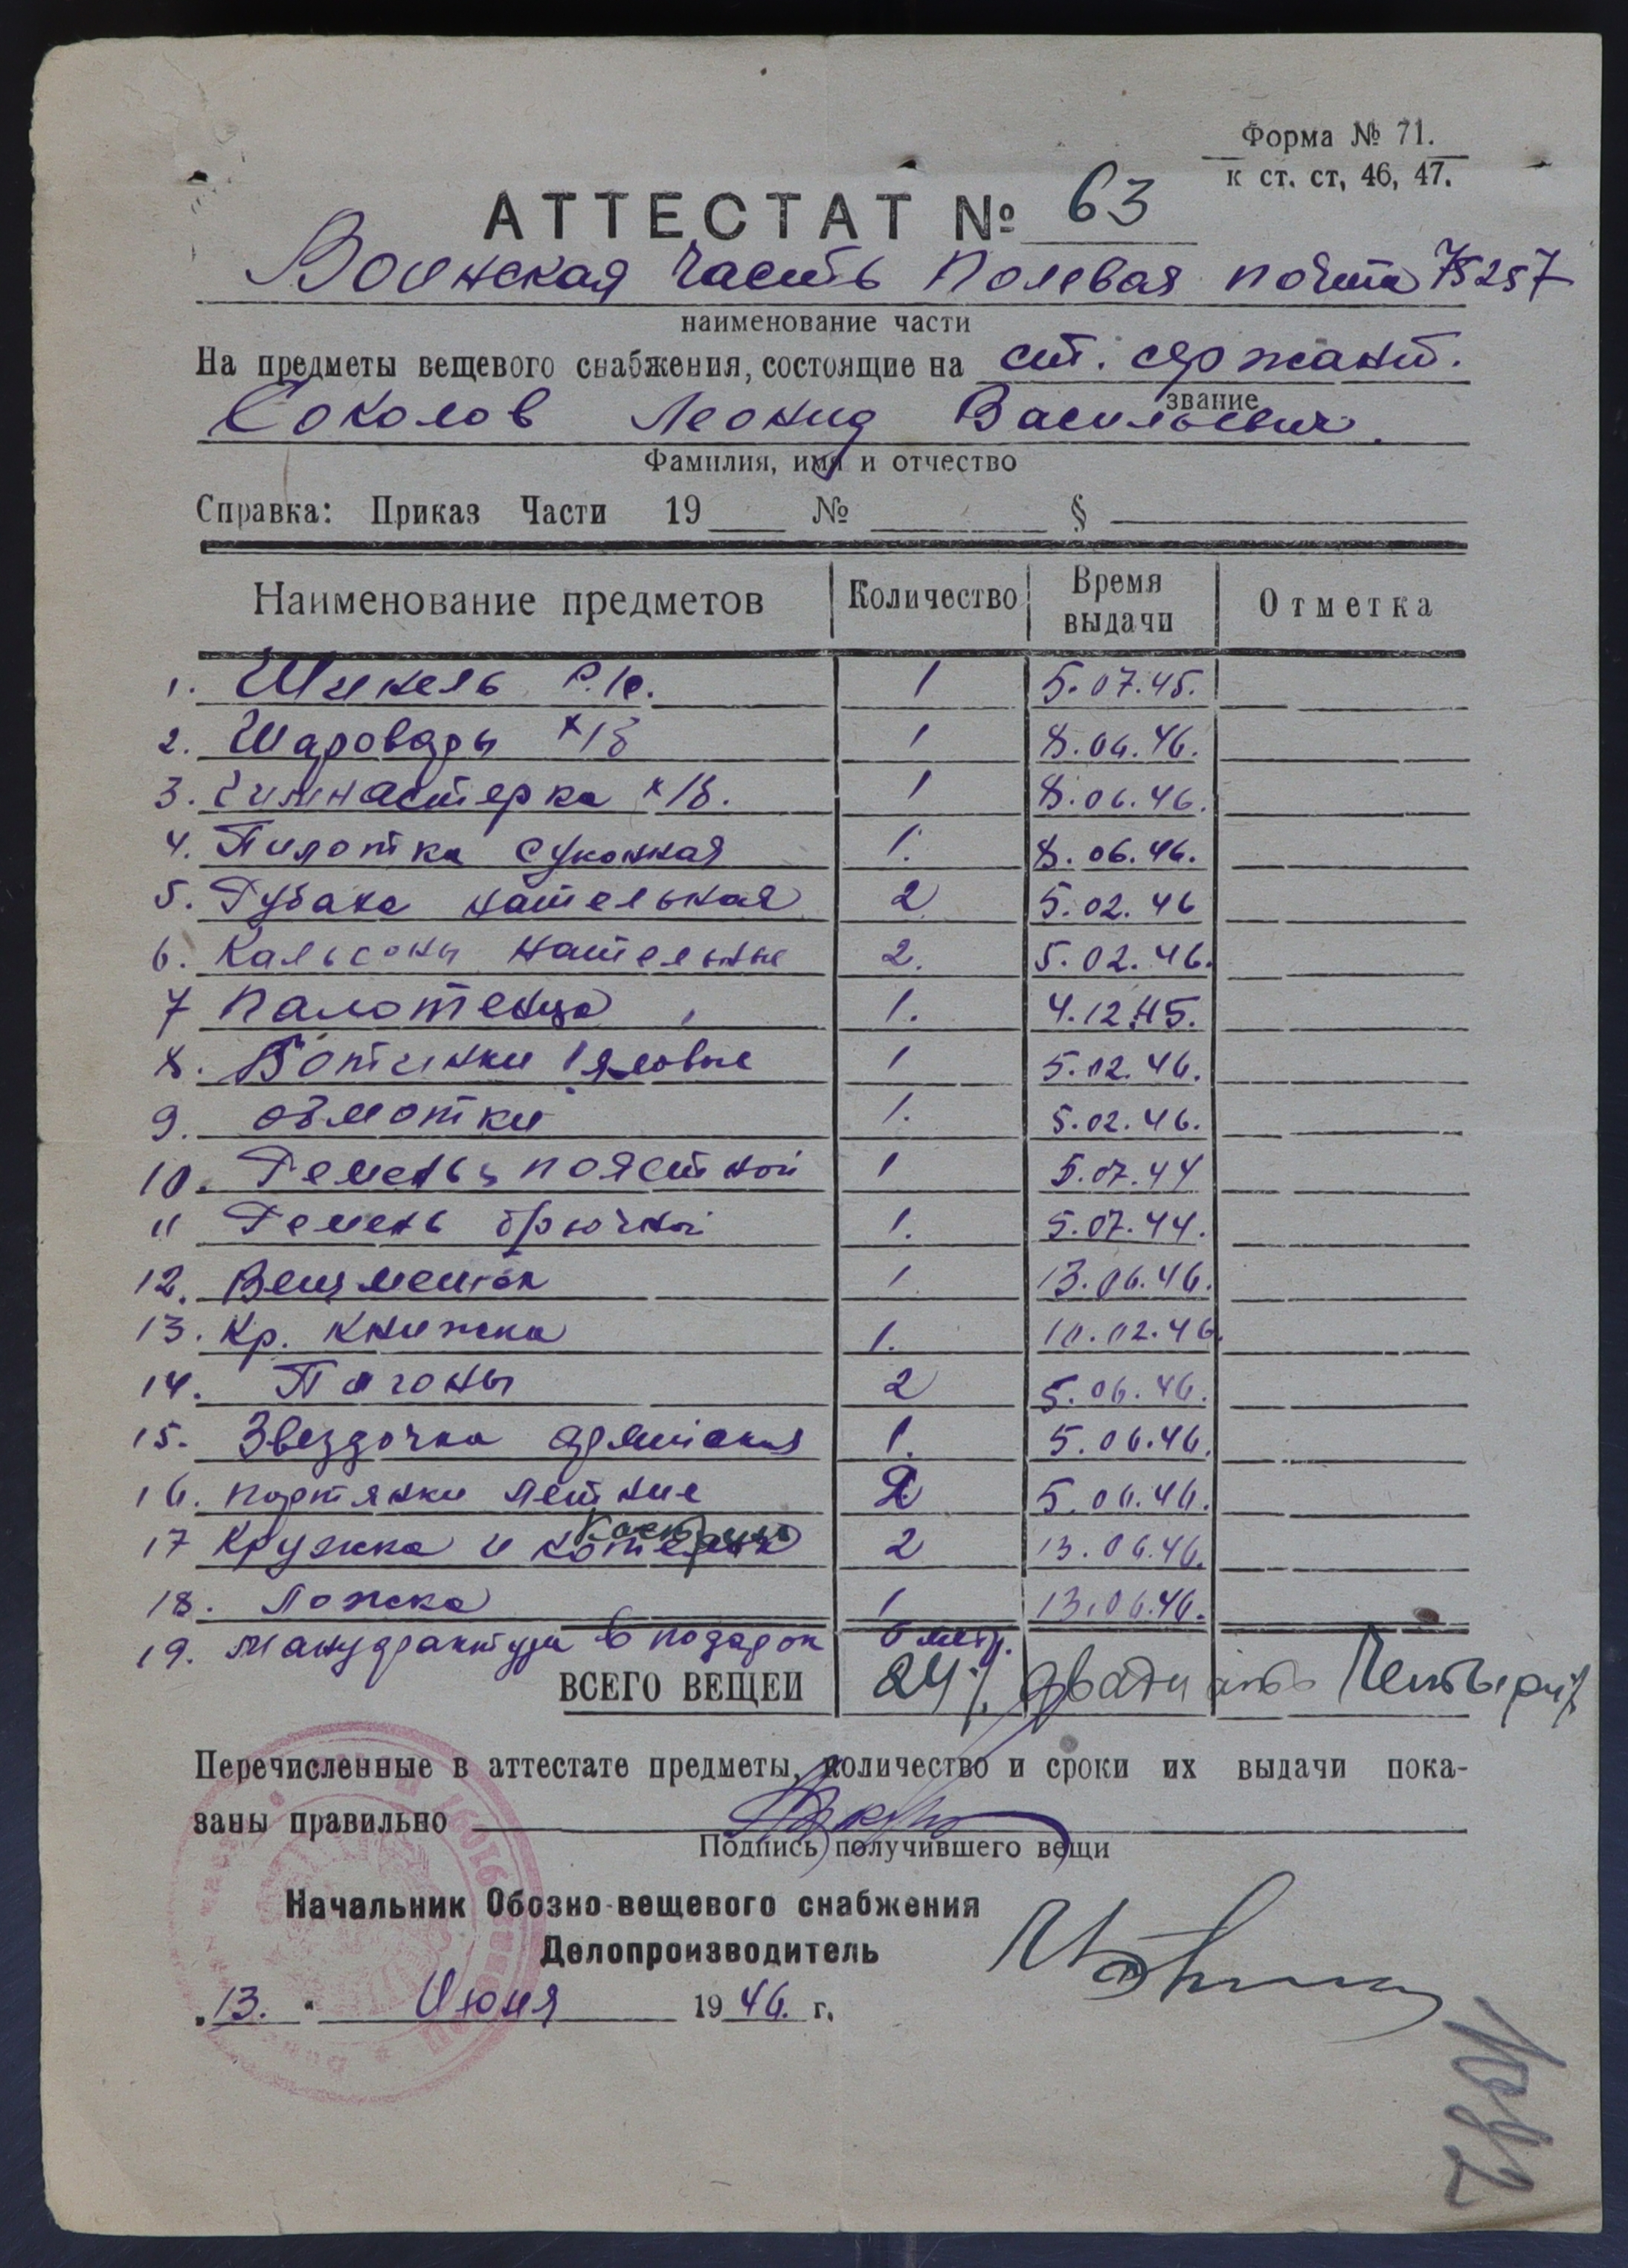 Форма № 71.
к ст. ст, 46, 47.
АТТЕСТАТ № 63
Воинская часть Полевая почта 75257
наименование части
На предметы вещевого снабжения, состоящие на ст. сержант.
звание
Соколов Леонид Васильевич.
Фамилия, имя и отчество
Справка: Приказ Части 19 № §
Наименование предметов Количество Время выдачи Отметка
1. Шинель 1 5.07.45.
2. Шаровары х/б 1 8.06.46.
3. Гимнастерка х/б. 1 8.06.46.
4. Пилотка суконная 1. 8.06.46.
5. Рубаха нательная 2 5.02.46
6. Кальсоны нательные 2. 5.02.46.
7 Палотенцо 1. 4.12.45.
8. Ботинки яловые 1 5.02.46.
9. обмотки 1. 5.02.46.
10. Ремень поястной 1 5.07.44
11 Ремень брючной 1. 5.07.44.
12. Вещмешок 1 13.06.46.
13. Кр. Книжка 1. 10.02.46.
14. Пагоны 2 5.06.46.
15. Звездочка 1. 5.06.46.
16. портянки летние 2 5.06.46.
17 Кружка и 2 13.06.46.
18. Ложка 1 13.06.46.
19. Мануфактура в подарок 6 метр.
ВСЕГО ВЕЩЕЙ 24 двадцать Четыре
Перечисленные в аттестате предметы, количество и сроки их выдачи пока-
заны правильно
Подпись получившего вещи
Начальник Обозно-вещевого снабжения
Делопроизводитель
„13." Июня 1946. г.
1092